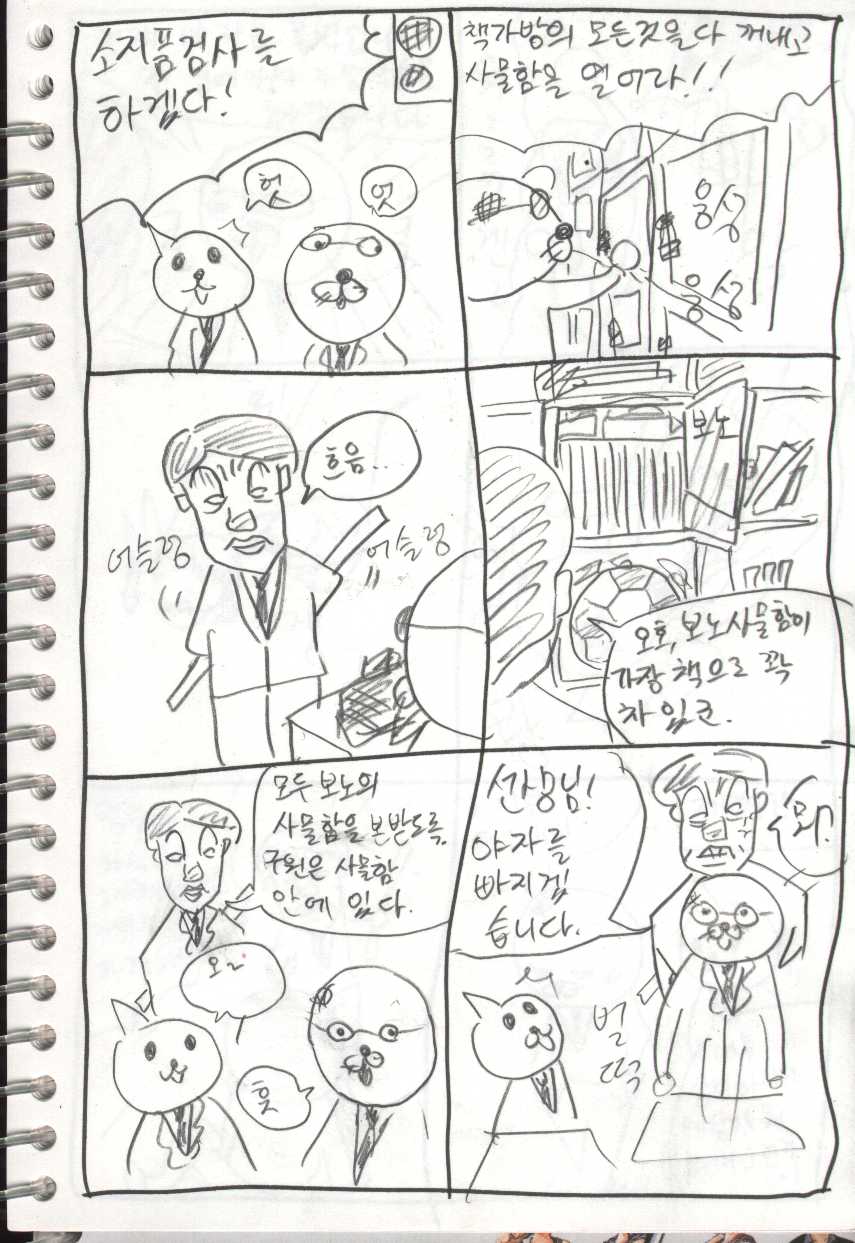 소지품검사를
하겠다!
헛
엇
책가방의 모든것을다 꺼내고
사물함을 열어라!!
웅성
웅성
흐음..
어슬렁
어슬렁
보노
777
오호, 보노사물함이
가장 책으로 꽉
차 있군.
모두 보노의
사물함을 본받도록.
구원은 사물함
안에 있다.
오
훗
선생님!
야자를
빠지겠
습니다.
뭐?
벌
떡